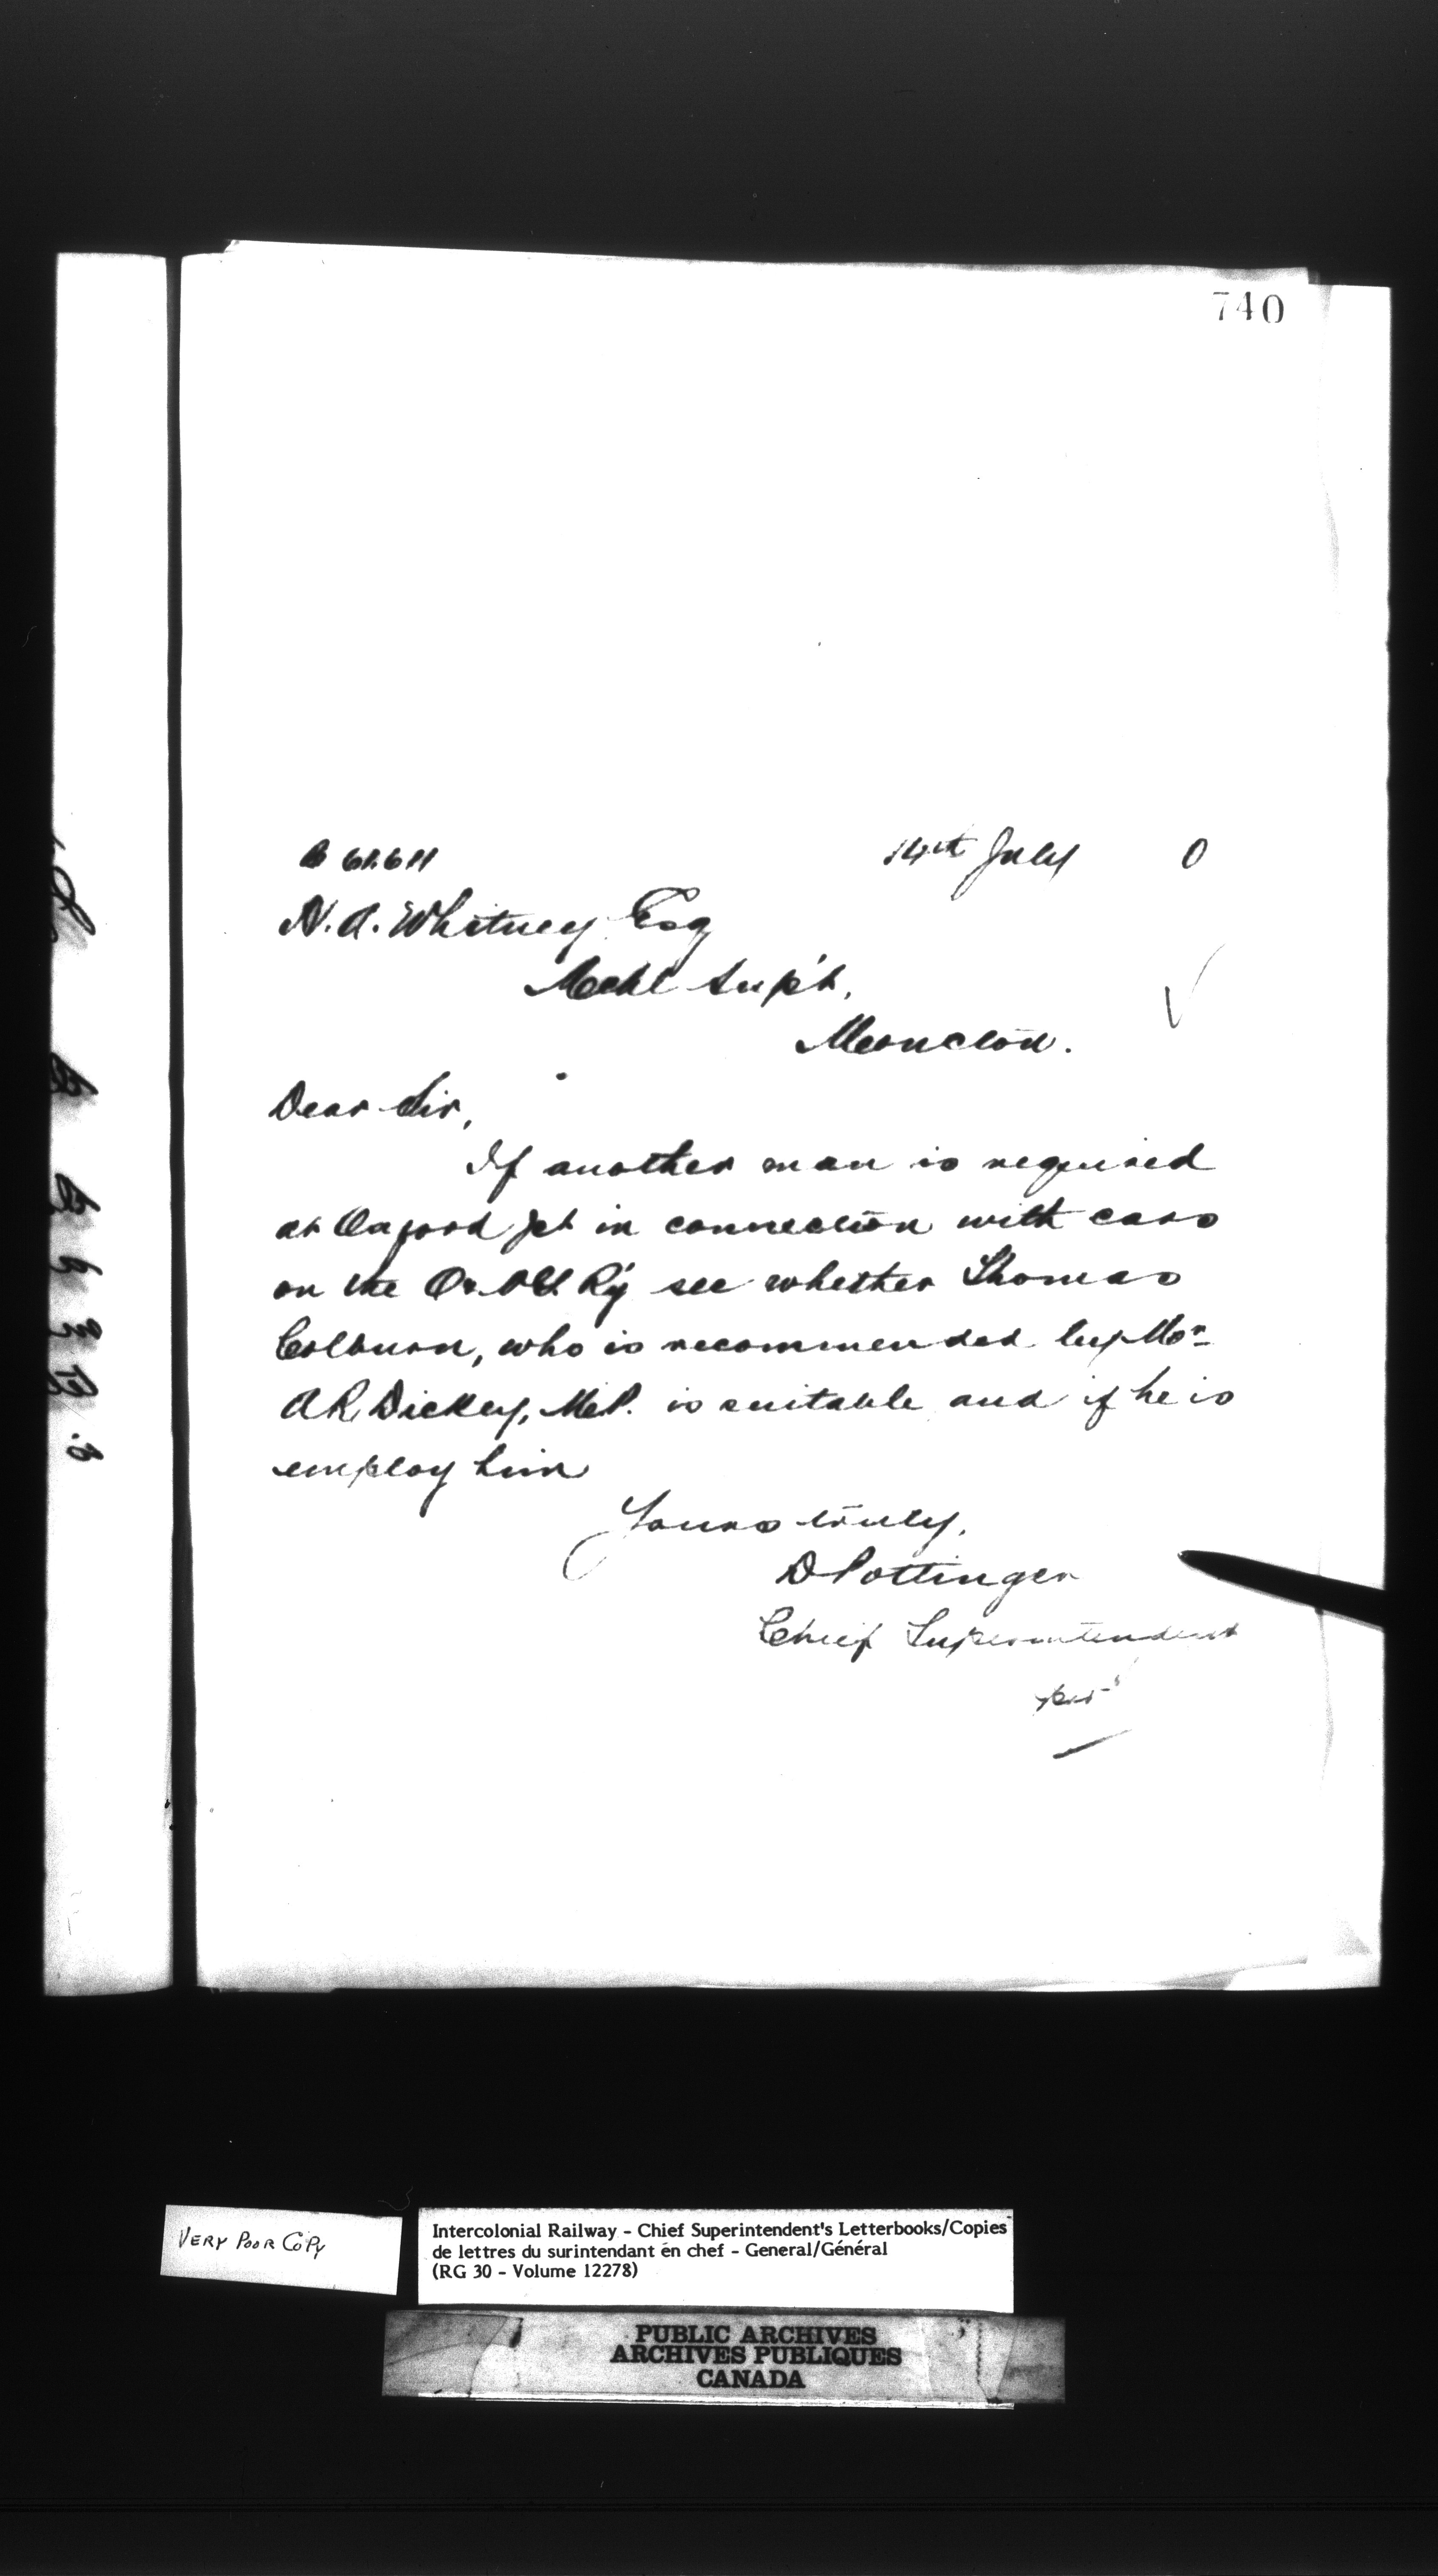 740
14th July 0
N. A. Whitney Esq
Mchl Sup't,
Moncton.
Dear Sir,
If another man is required
at Oxford Jct in connection with cars
on the Ry see whether Thomas
Colburn, who is recommended by Mr
A R Dickey, M.P. is suitable and if he is
employ him
Yours truly,
D Pottinger
Chief Superintendent
per
VERY POOR COPY
Intercolonial Railway - Chief Superintendent's Letterbooks/Copies
de lettres du surintendant en chef - General/Général
(RG 30 - Volume 12278)
PUBLIC ARCHIVES
ARCHIVES PUBLIQUES
CANADA